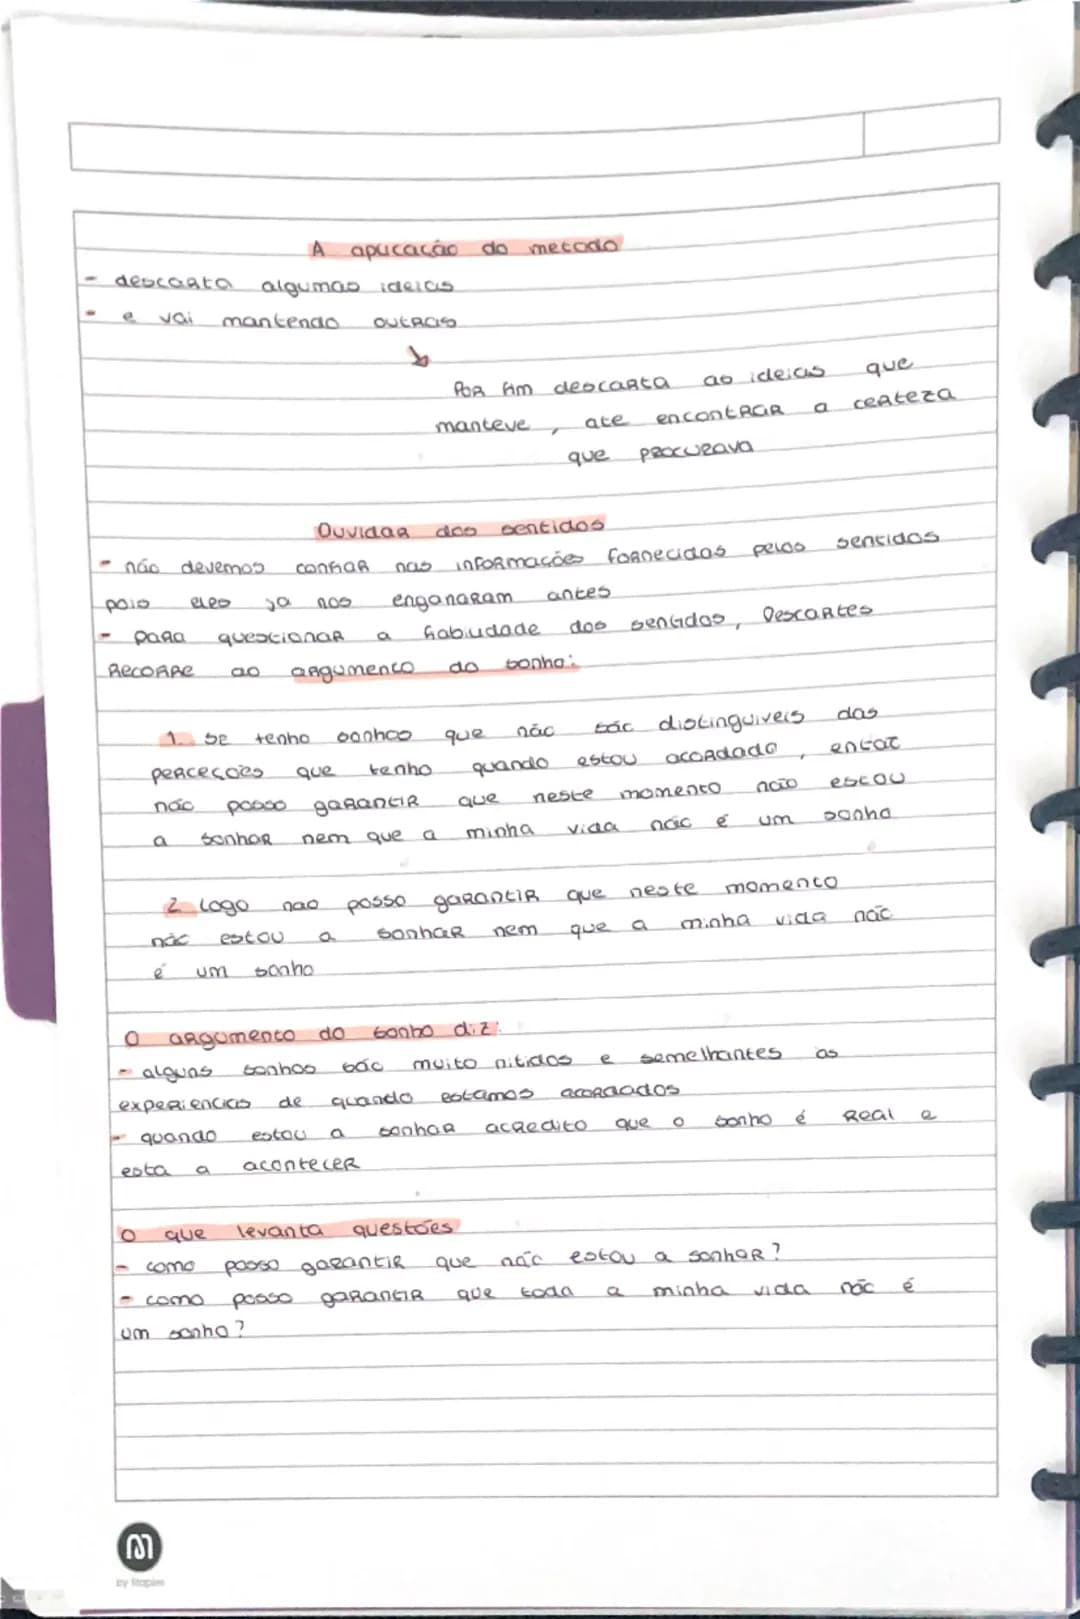 A aplicação do metodo
- descarta algumas ideias
- e vai mantendo outras
Por fim descarta as ideias que
manteve, ate encontrar a certeza
que procurava
Duvidar dos sentidos
- não devemos confiar nas informações fornecidas pelos sentidos
pois eles ja nos enganaram antes
- para questionar a fiabilidade dos sentidos, Descartes
recorre ao argumento do sonho:
1. se tenho sonhos que não são distinguiveis das
perceções que tenho quando estou acordado, então
não posso garantir que neste momento não estou
a sonhar nem que a minha vida não é um sonho
2 Logo nao posso garantir que neste momento
não estou a sonhar nem que a minha vida não
é um sonho
O argumento do sonho diz:
- alguns sonhos são muito nitidos e semelhantes as
experiencias de quando estamos acordados
- quando estou a sonhar acredito que o sonho é real e
esta a acontecer
O que levanta questões
- como posso garantir que não estou a sonhar?
- como posso garantir que toda a minha vida não é
um sonho?